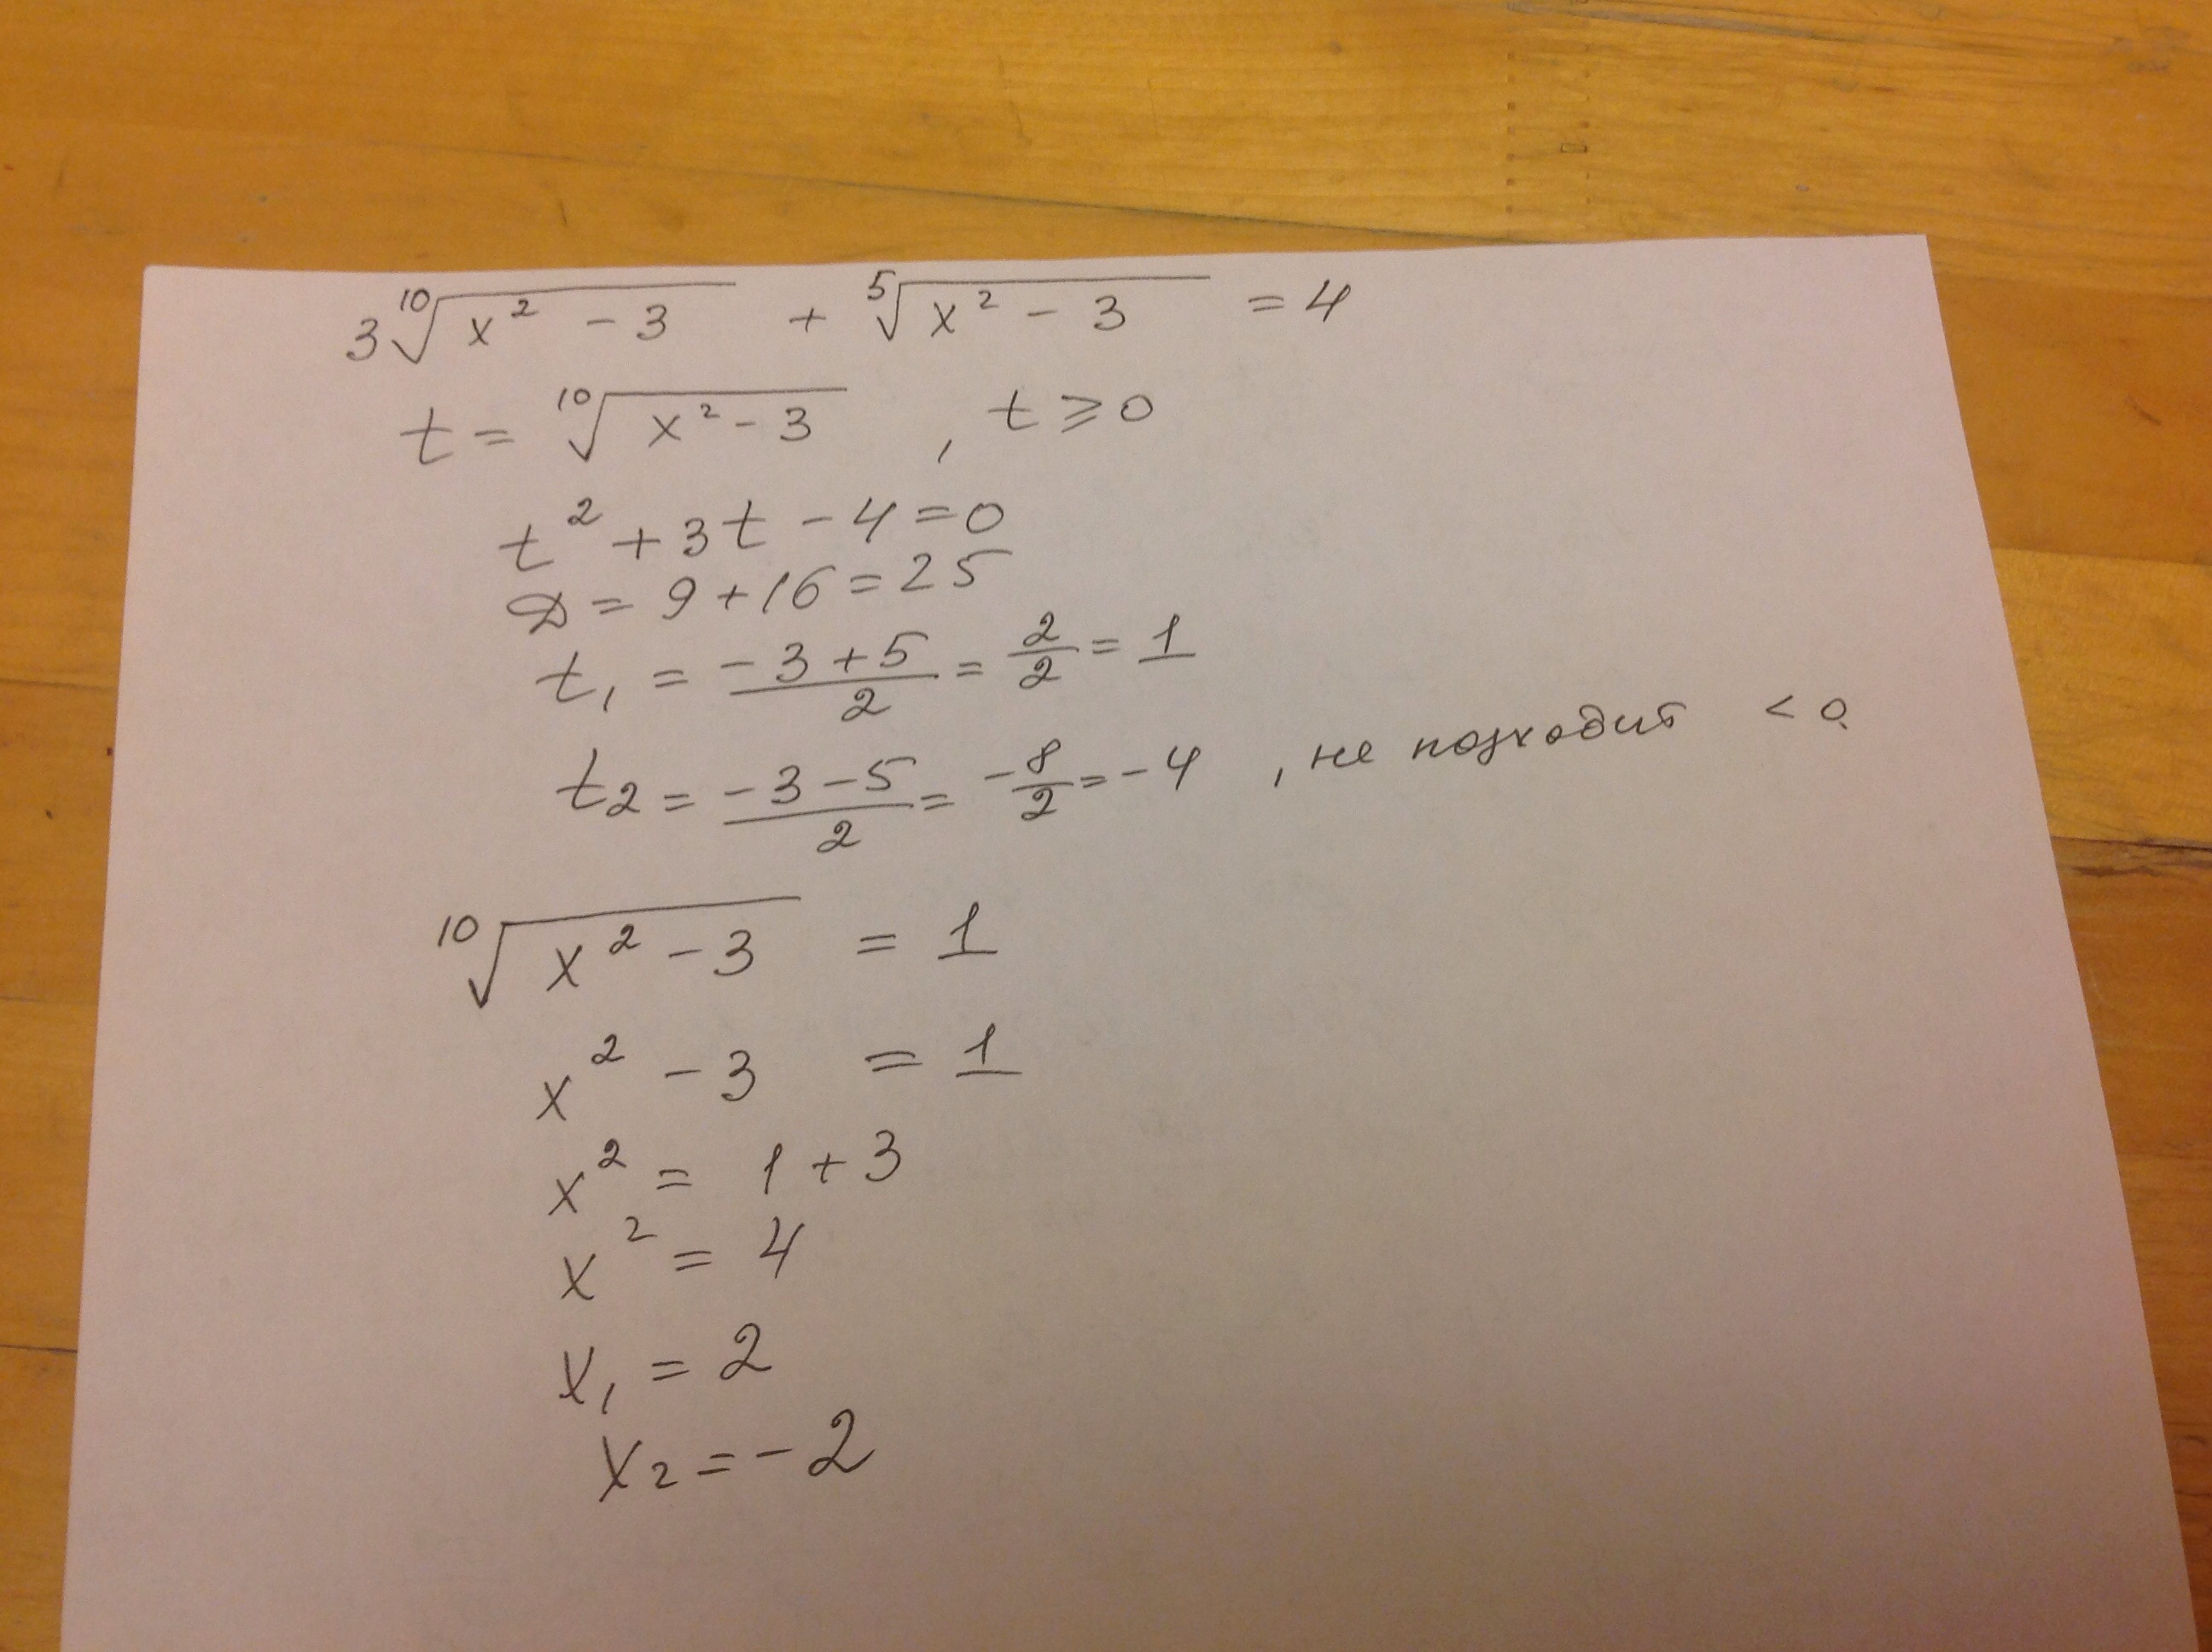 3 ¹⁰√(x² - 3) + ⁵√(x² - 3) = 4
t = ¹⁰√(x² - 3) , t ⩾ 0
t² + 3t - 4 = 0
D = 9 + 16 = 25
t₁ = (-3 + 5)/2 = 2/2 = 1
t₂ = (-3 - 5)/2 = -8/2 = -4 , не подходит < 0
¹⁰√(x² - 3) = 1
x² - 3 = 1
x² = 1 + 3
x² = 4
x₁ = 2
x₂ = -2